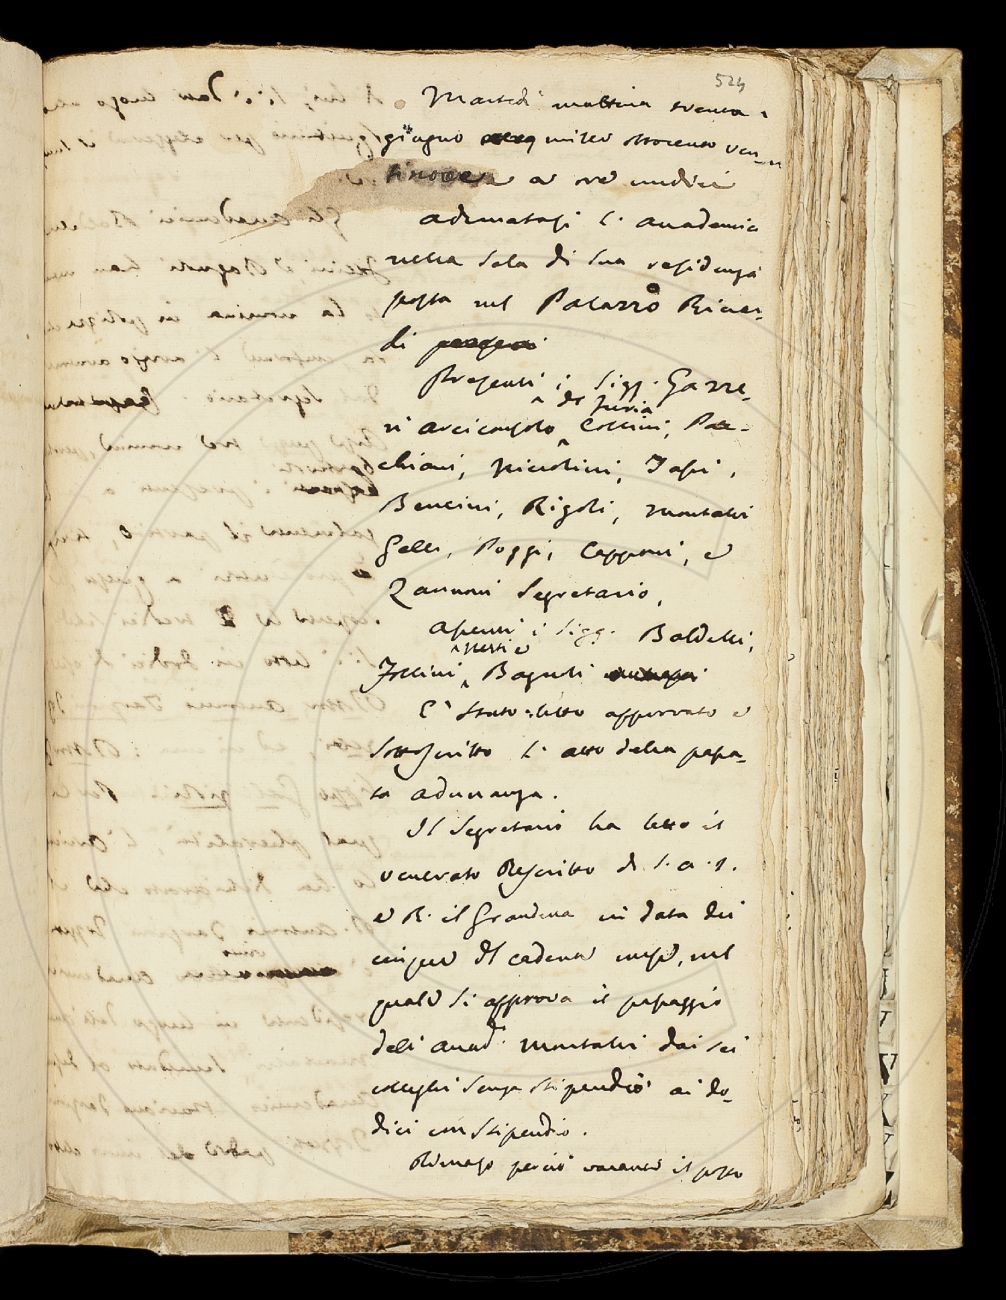 524
Martedì mattina trenta
giugno mille ottocento ven-
tinove a ore undici
Adunatasi l'Accademia
nella Sala di sua residenza
posta nel Palazzo Ricar-
di
Presenti i Sigg. Gazze-
ri Arciconsolo, del Furia, Collini, Pac-
chiani, Niccolini, Tassi,
Bencini, Rigoli, Montalvi
Gelli, Poggi, Capponi, e
Zannoni Segretario,
Assenti i Sigg. Baldelli,
Follini, Nesti e Bagnoli
È stato letto approvato e
sottoscritto l'atto della passa-
ta adunanza.
Il Segretario ha letto il
venerato Rescritto di S. A. I.
e R. il Granduca in data dei
cinque del cadente mese, nel
quale si approva il passaggio
dell' Accad.º Montalvi dai sei
colleghi senza stipendio ai do-
dici con stipendio.
Rimaso perciò vacante il posto